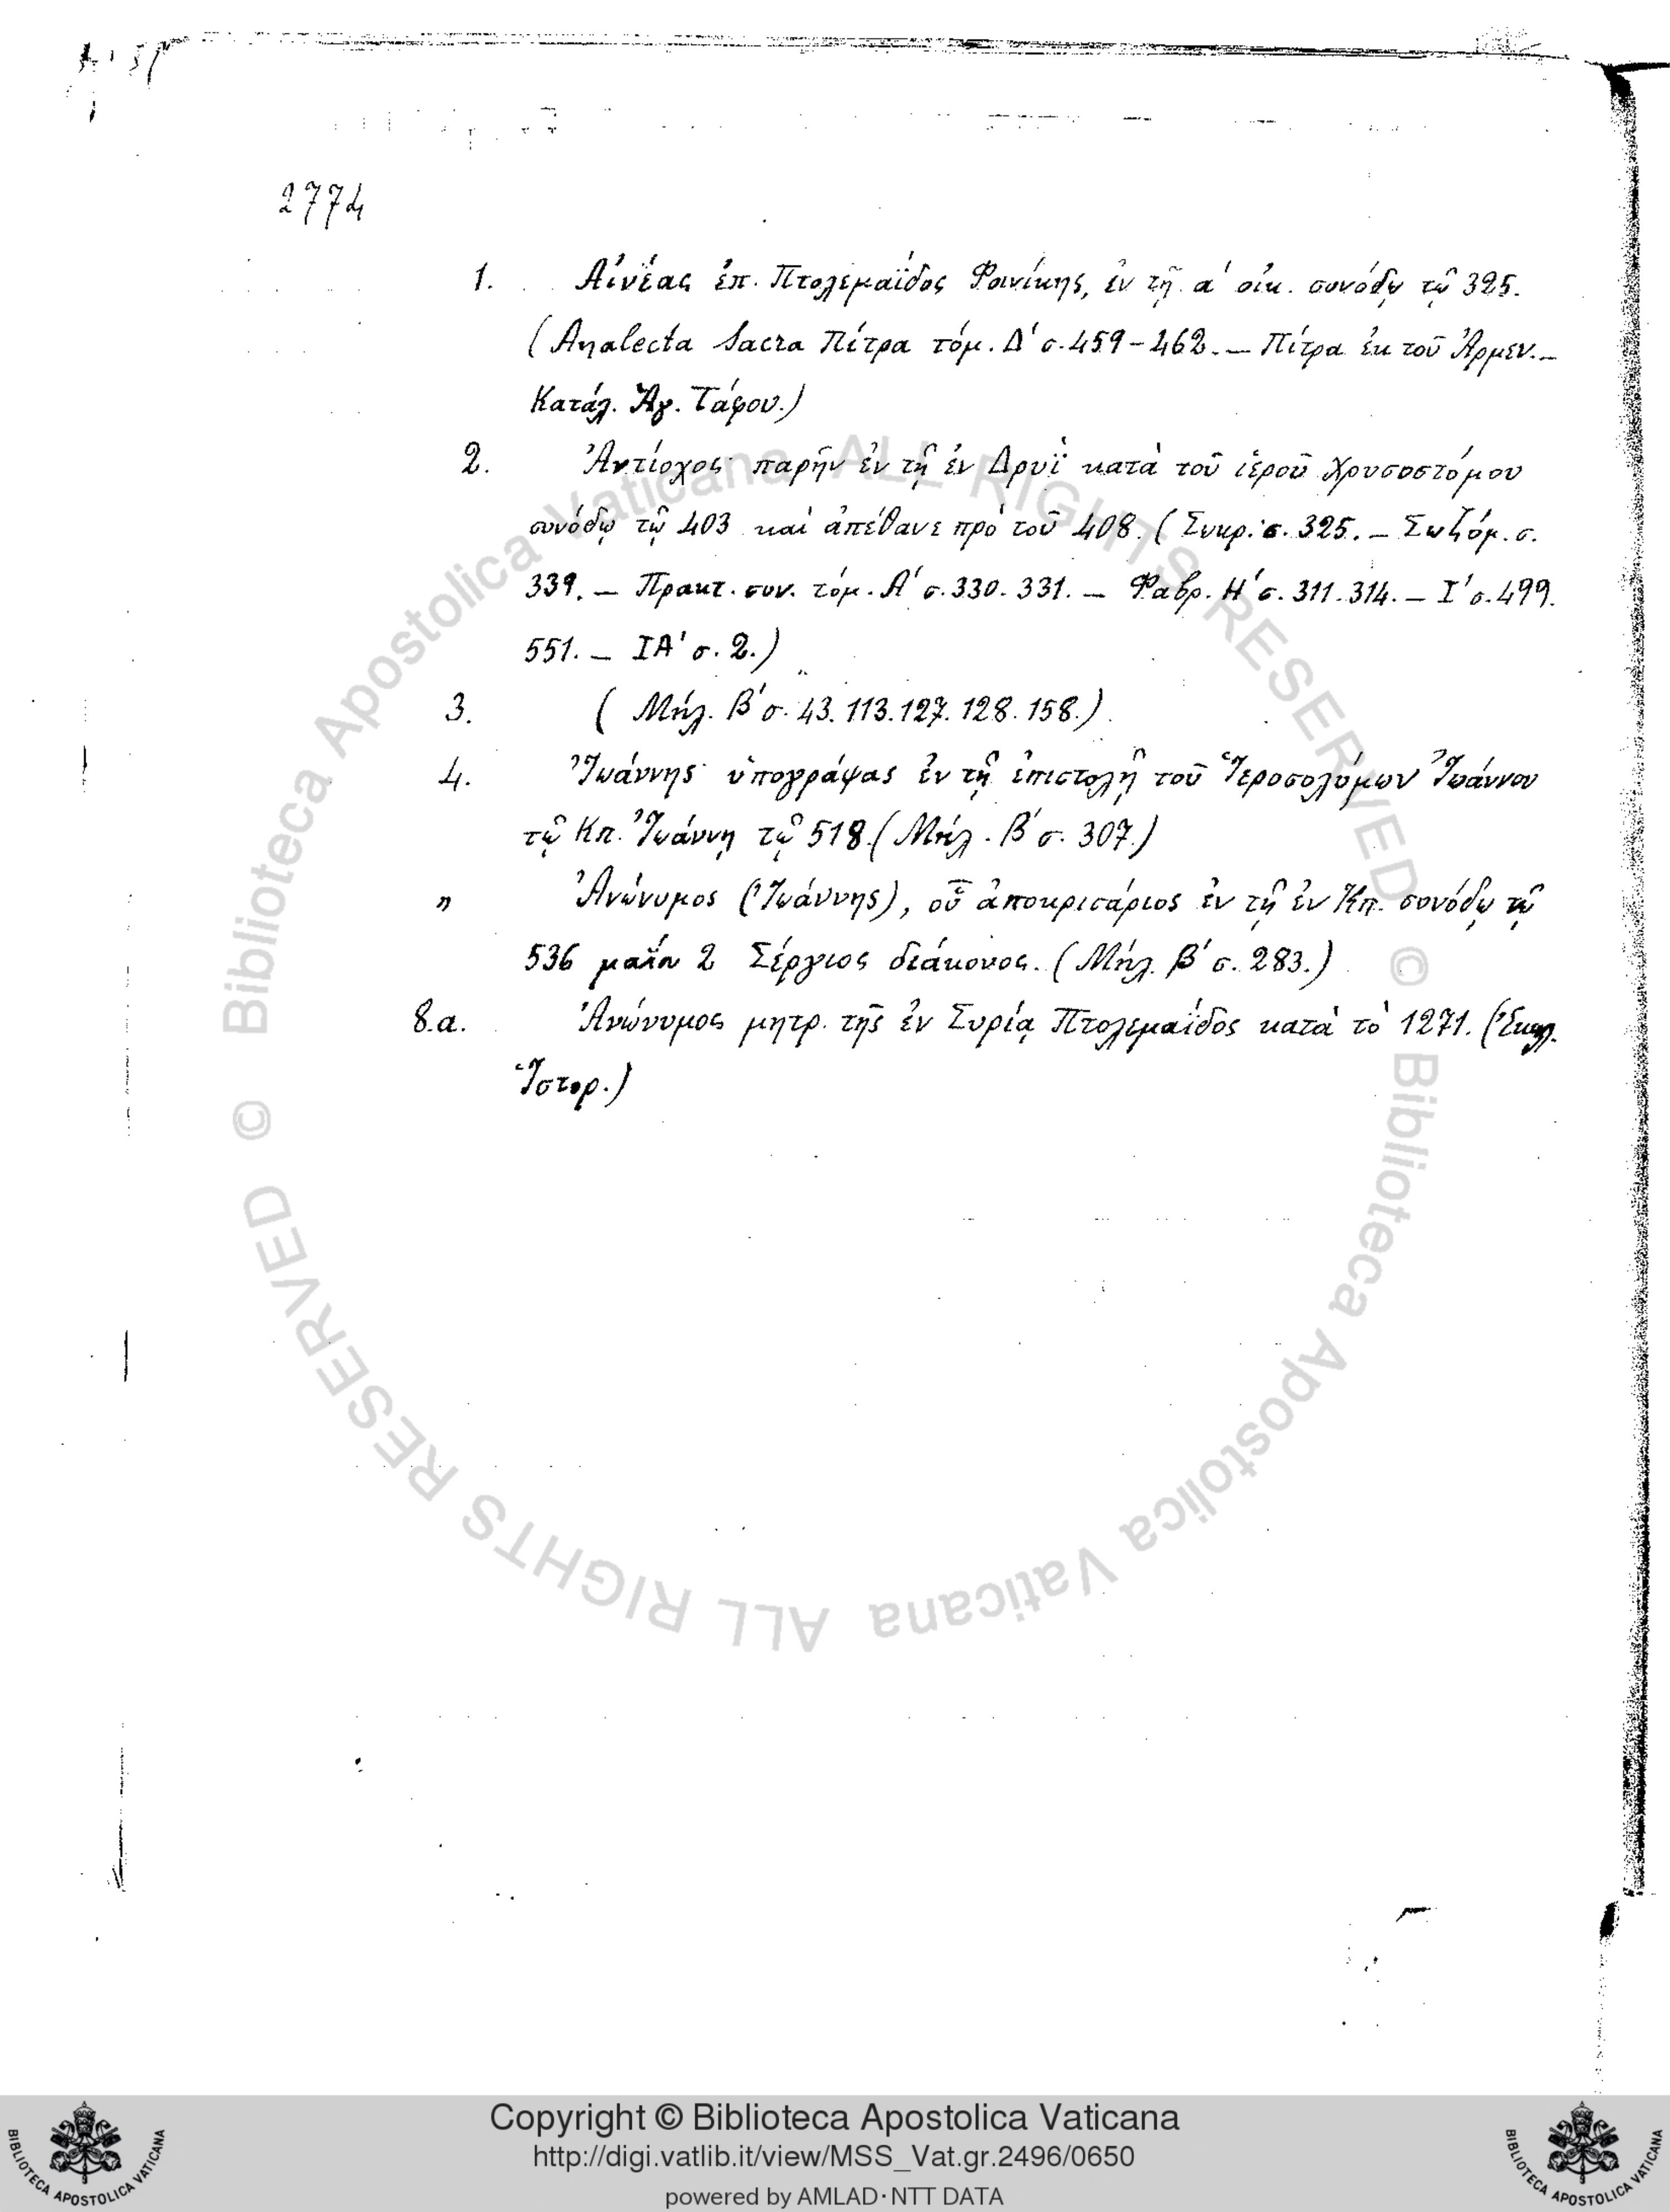 2774
1. Αἰνέας ἐπ. Πτολεμαΐδος Φοινίκης, ἐν τῇ α' οἰκ. συνόδῳ τῷ 325.
(Analecta Sacra Πίτρα τόμ. Δ' σ. 459-462. — Πίτρα ἐκ τοῦ Ἀρμεν. —
Κατάλ. Ἁγ. Τάφου.)
2. Ἀντίοχος παρῆν ἐν τῇ ἐν Δρυῒ κατὰ τοῦ ἱεροῦ Χρυσοστόμου
συνόδῳ τῷ 403 καὶ ἀπέθανε πρὸ τοῦ 408. (Σωκρ. σ. 325. — Σωζόμ. σ.
339. — Πρακτ. συν. τόμ. Α' σ. 330. 331. — Φαβρ. Η' σ. 311. 314. — Ι' σ. 499.
551. — ΙΑ' σ. 2.)
3. (Μήλ. Β' σ. 43. 113. 127. 128. 158.)
4. Ἰωάννης ὑπογράψας ἐν τῇ ἐπιστολῇ τοῦ Ἱεροσολύμων Ἰωάννου
τῷ Κπ. Ἰωάννῃ τῷ 518. (Μήλ. Β' σ. 307.)
" Ἀνώνυμος (Ἰωάννης), οὗ ἀποκρισάριος ἐν τῇ ἐν Κπ. συνόδῳ τῷ
536 μαΐῳ 2 Σέργιος διάκονος. (Μήλ. Β' σ. 283.)
8.α. Ἀνώνυμος μητρ. τῆς ἐν Συρίᾳ Πτολεμαΐδος κατὰ τὸ 1271. (Ἐκκλ.
Ἱστορ.)
© Biblioteca Apostolica Vaticana ALL RIGHTS RESERVED
© Biblioteca Apostolica Vaticana ALL RIGHTS RESERVED
Copyright © Biblioteca Apostolica Vaticana
http://digi.vatlib.it/view/MSS_Vat.gr.2496/0650
powered by AMLAD·NTT DATA
BIBLIOTECA APOSTOLICA VATICANA
BIBLIOTECA APOSTOLICA VATICANA